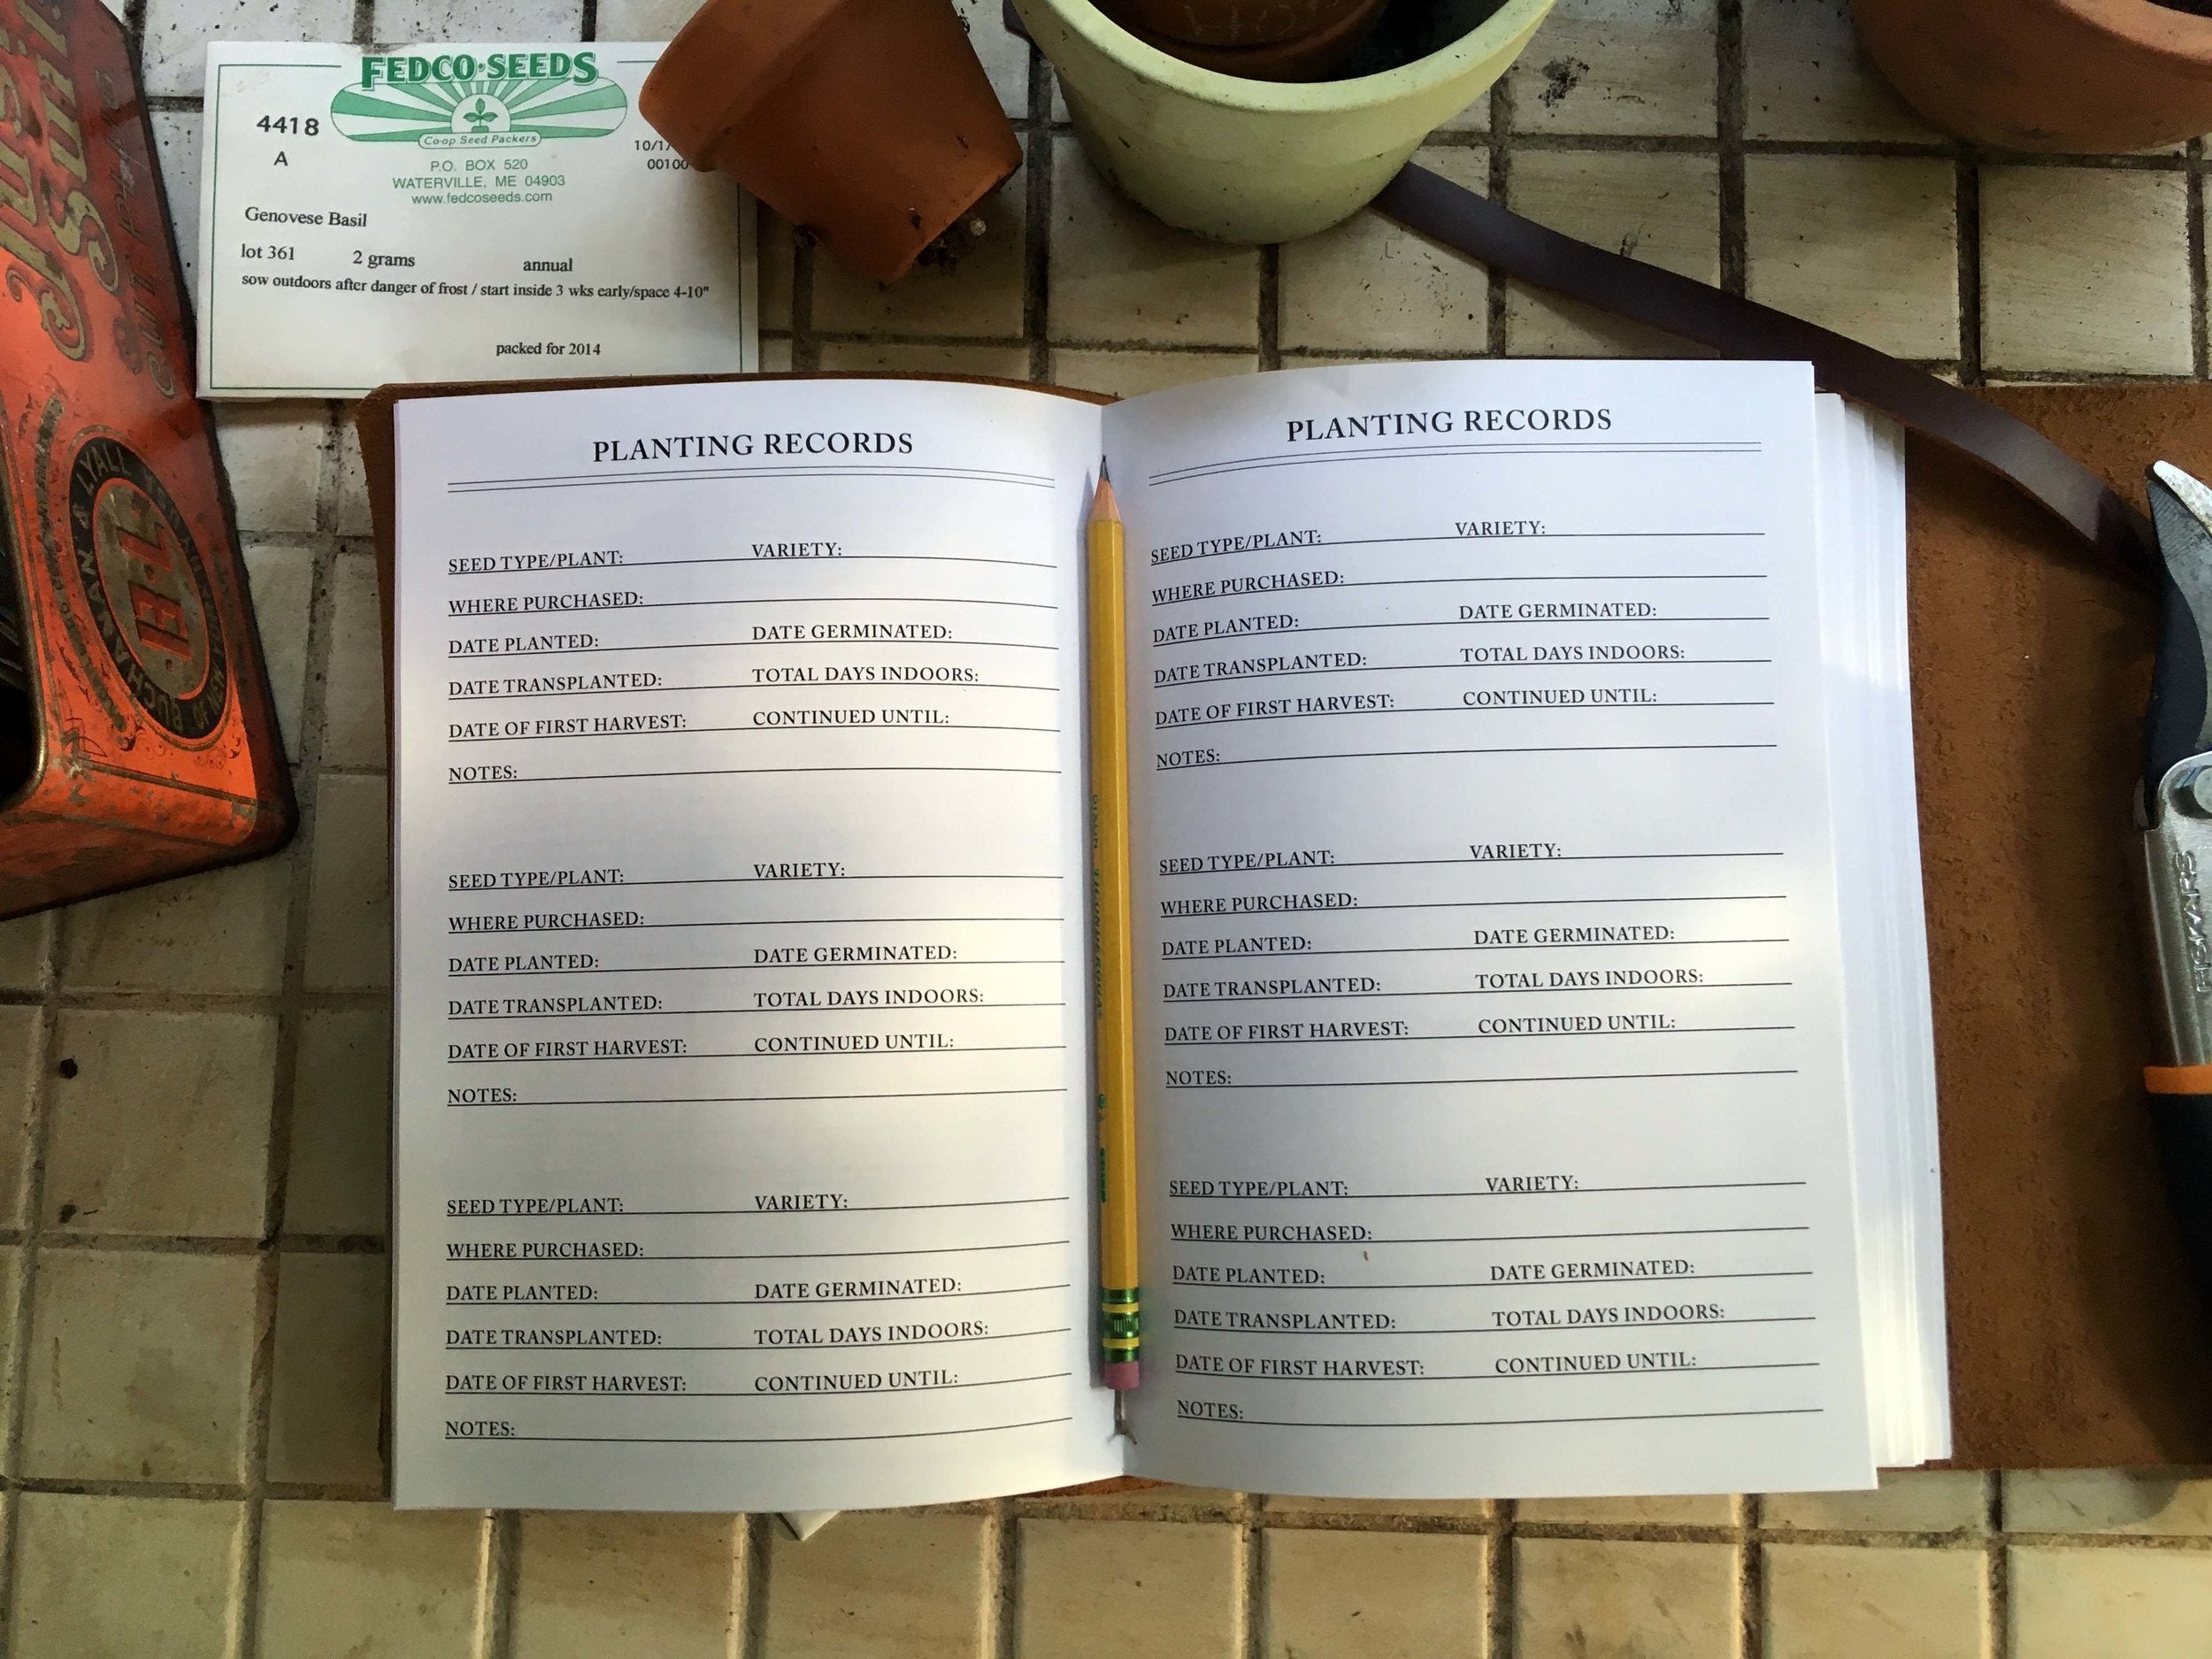 FEDCO·SEEDS
Co-op Seed Packers
4418
A
10/17
00100
P.O. BOX 520
WATERVILLE, ME 04903
www.fedcoseeds.com
Genovese Basil
lot 361 2 grams annual
sow outdoors after danger of frost / start inside 3 wks early/space 4-10"
packed for 2014
BUCHANAN & LYALL
B·L
OF NEW
PLANTING RECORDS
SEED TYPE/PLANT: VARIETY:
WHERE PURCHASED:
DATE PLANTED: DATE GERMINATED:
DATE TRANSPLANTED: TOTAL DAYS INDOORS:
DATE OF FIRST HARVEST: CONTINUED UNTIL:
NOTES:
SEED TYPE/PLANT: VARIETY:
WHERE PURCHASED:
DATE PLANTED: DATE GERMINATED:
DATE TRANSPLANTED: TOTAL DAYS INDOORS:
DATE OF FIRST HARVEST: CONTINUED UNTIL:
NOTES:
SEED TYPE/PLANT: VARIETY:
WHERE PURCHASED:
DATE PLANTED: DATE GERMINATED:
DATE TRANSPLANTED: TOTAL DAYS INDOORS:
DATE OF FIRST HARVEST: CONTINUED UNTIL:
NOTES:
PLANTING RECORDS
SEED TYPE/PLANT: VARIETY:
WHERE PURCHASED:
DATE PLANTED: DATE GERMINATED:
DATE TRANSPLANTED: TOTAL DAYS INDOORS:
DATE OF FIRST HARVEST: CONTINUED UNTIL:
NOTES:
SEED TYPE/PLANT: VARIETY:
WHERE PURCHASED:
DATE PLANTED: DATE GERMINATED:
DATE TRANSPLANTED: TOTAL DAYS INDOORS:
DATE OF FIRST HARVEST: CONTINUED UNTIL:
NOTES:
SEED TYPE/PLANT: VARIETY:
WHERE PURCHASED:
DATE PLANTED: DATE GERMINATED:
DATE TRANSPLANTED: TOTAL DAYS INDOORS:
DATE OF FIRST HARVEST: CONTINUED UNTIL:
NOTES:
FISKARS